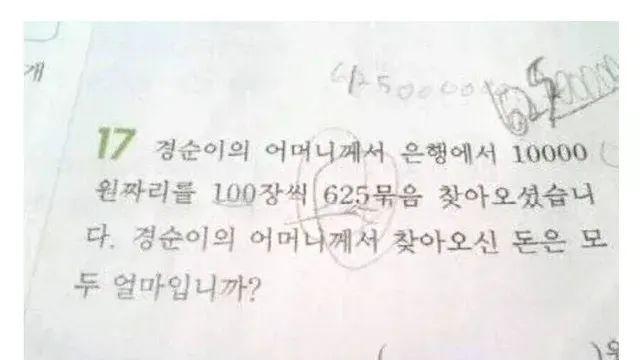 개
17 경순이의 어머니께서 은행에서 10000
원짜리를 100장씩 625묶음 찾아오셨습니
다. 경순이의 어머니께서 찾아오신 돈은 모
두 얼마입니까?
(                    )원